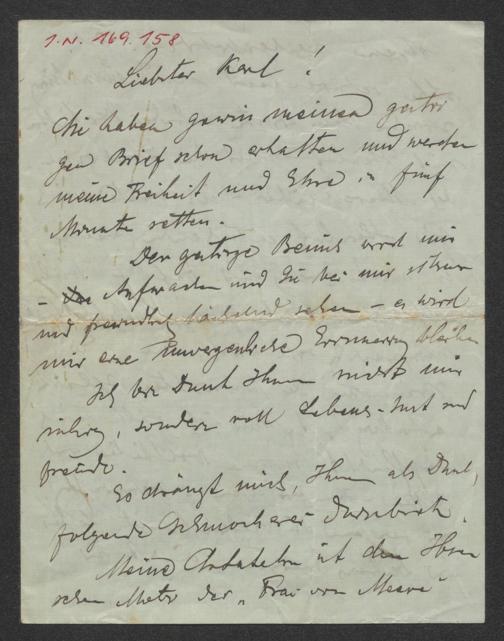 I.N. 169.158
Liebster Karl!
Sie haben gewiss meinen gestri
gen Brief schon erhalten und werden
meine Freiheit und Ehre in fünf
Minuten retten.
Der gestrige Besuch wird mir
– Aufwachen und Sie bei mir sitzen
und freundlich lächelnd sehen – es wird
mir eine unvergessliche Erinnerung bleiben
Ich bin Dank Ihnen nicht nur
ruhig, sondern voll Lebens-Lust und
freude.
Es drängt mich, Ihnen als Dank,
folgende
Meine ist dem Ibsen
schen Motiv der „Frau vom Meere"